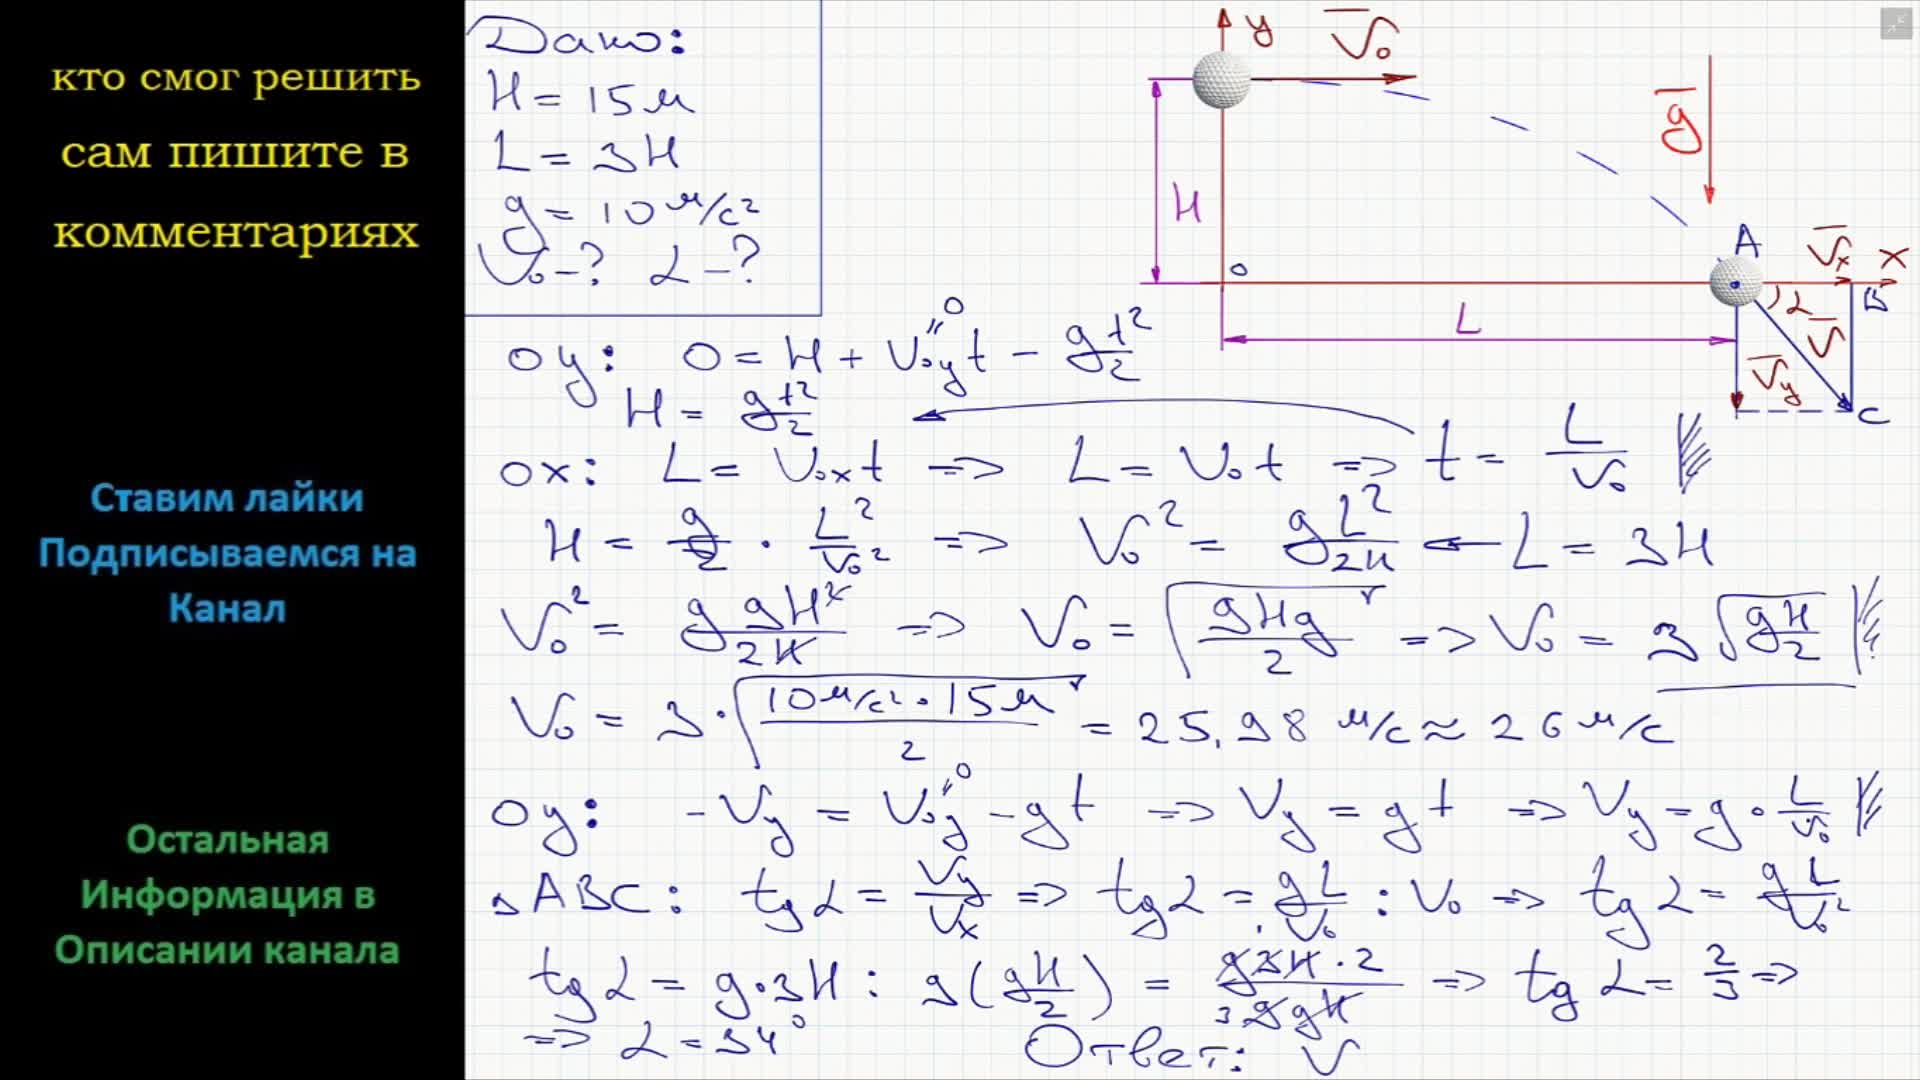 кто смог решить
сам пишите в
комментариях
Ставим лайки
Подписываемся на
Канал
Остальная
Информация в
Описании канала
Дано:
H = 15 м
L = 3H
g = 10 м/с²
V₀ - ? α - ?
y V̄₀
H
ḡ
A V̄ₓ x
0 α B
L V̄
V̄y C
oy: 0 = H + V₀y t - gt²/2
" 0
H = gt²/2
ox: L = V₀ₓt => L = V₀t => t = L/V₀
H = g/2 · L²/V₀² => V₀² = gL²/2H ← L = 3H
V₀² = g 9H²/2H => V₀ = √(9Hg/2) => V₀ = 3√(gH/2)
V₀ = 3·√(10 м/с² · 15 м/2) = 25,98 м/с ≈ 26 м/с
oy: -Vy = V₀y - gt => Vy = gt => Vy = g · L/V₀
" 0
▵ABC: tg α = Vy/Vx => tg α = gL/V₀ : V₀ => tg α = gL/V₀²
tg α = g·3H : 9(gH/2) = g3H·2/9gH => tg α = 2/3 =>
3
=> α = 34° Ответ: V